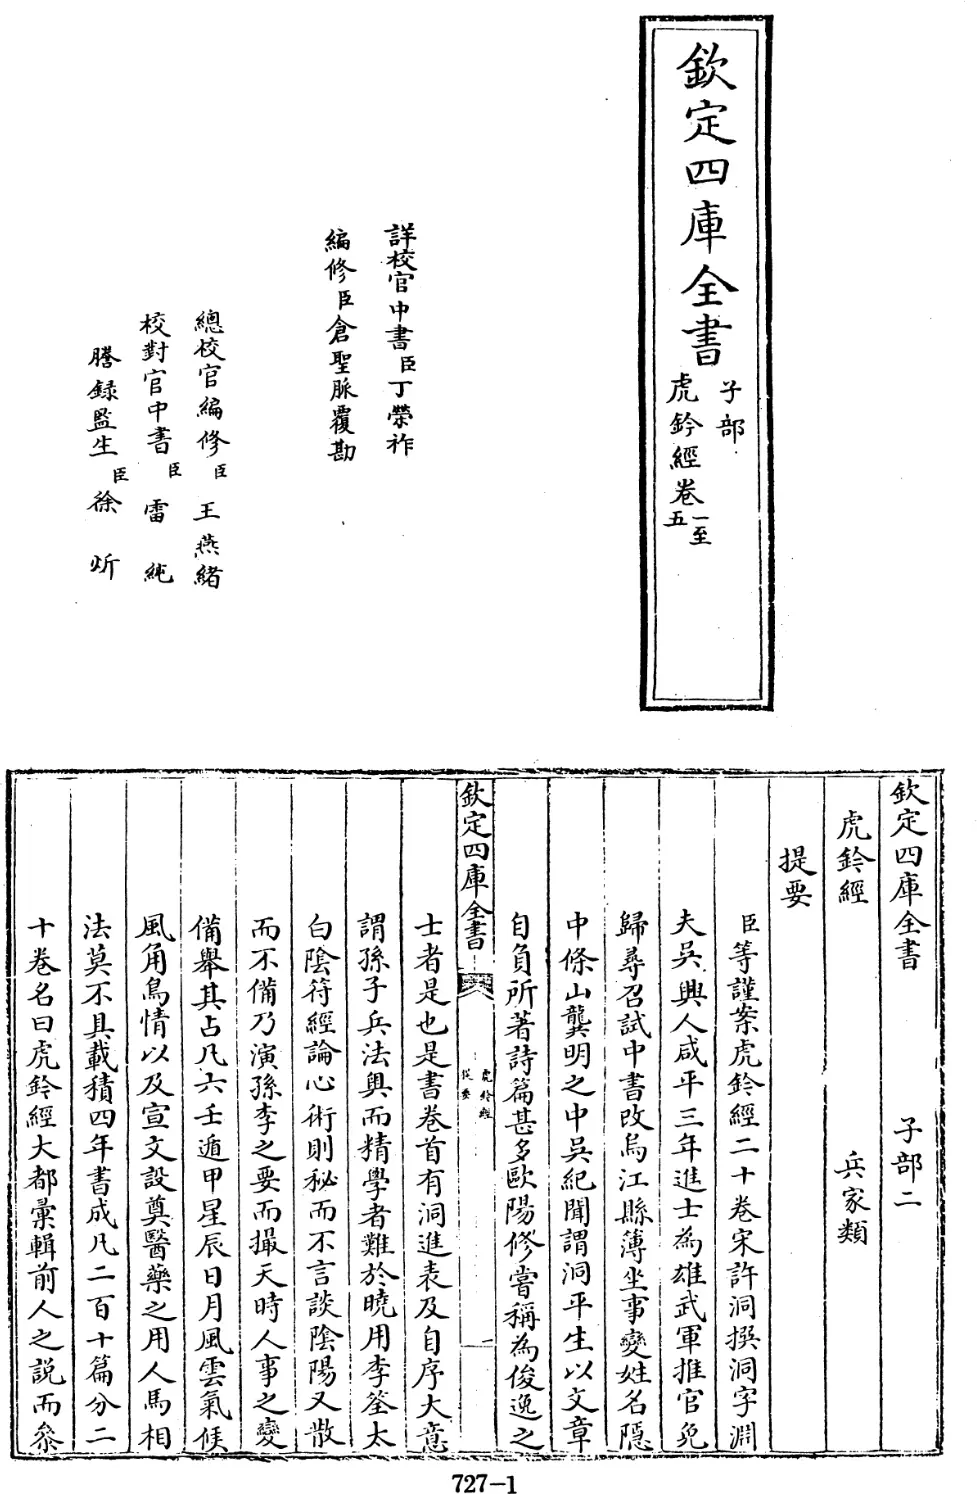 欽定四庫全書
子部
虎鈐經卷一至五
詳校官中書臣丁榮祚
編修臣倉聖脈覆勘
總校官編修臣王燕緒
校對官中書臣雷純
謄録監生臣徐炘
欽定四庫全書 子部二
虎鈐經 兵家類
提要
臣等謹案虎鈐經二十卷宋許洞撰洞字淵
夫吳興人咸平三年進士為雄武軍推官免
歸尋召試中書改烏江縣簿坐事變姓名隱
中條山龔明之中吳紀聞謂洞平生以文章
自負所著詩篇甚多歐陽修嘗稱為俊逸之
欽定四庫全書 虎鈐經 提要 一
士者是也是書卷首有洞進表及自序大意
謂孫子兵法奥而精學者難於曉用李筌太
白陰符經論心術則秘而不言談陰陽又散
而不備乃演孫李之要而撮天時人事之變
備舉其占凡六壬遁甲星辰日月風雲氣候
風角鳥情以及宣文設奠醫藥之用人馬相
法莫不具載積四年書成凡二百十篇分二
十卷名曰虎鈐經大都彙輯前人之説而叅
727-1